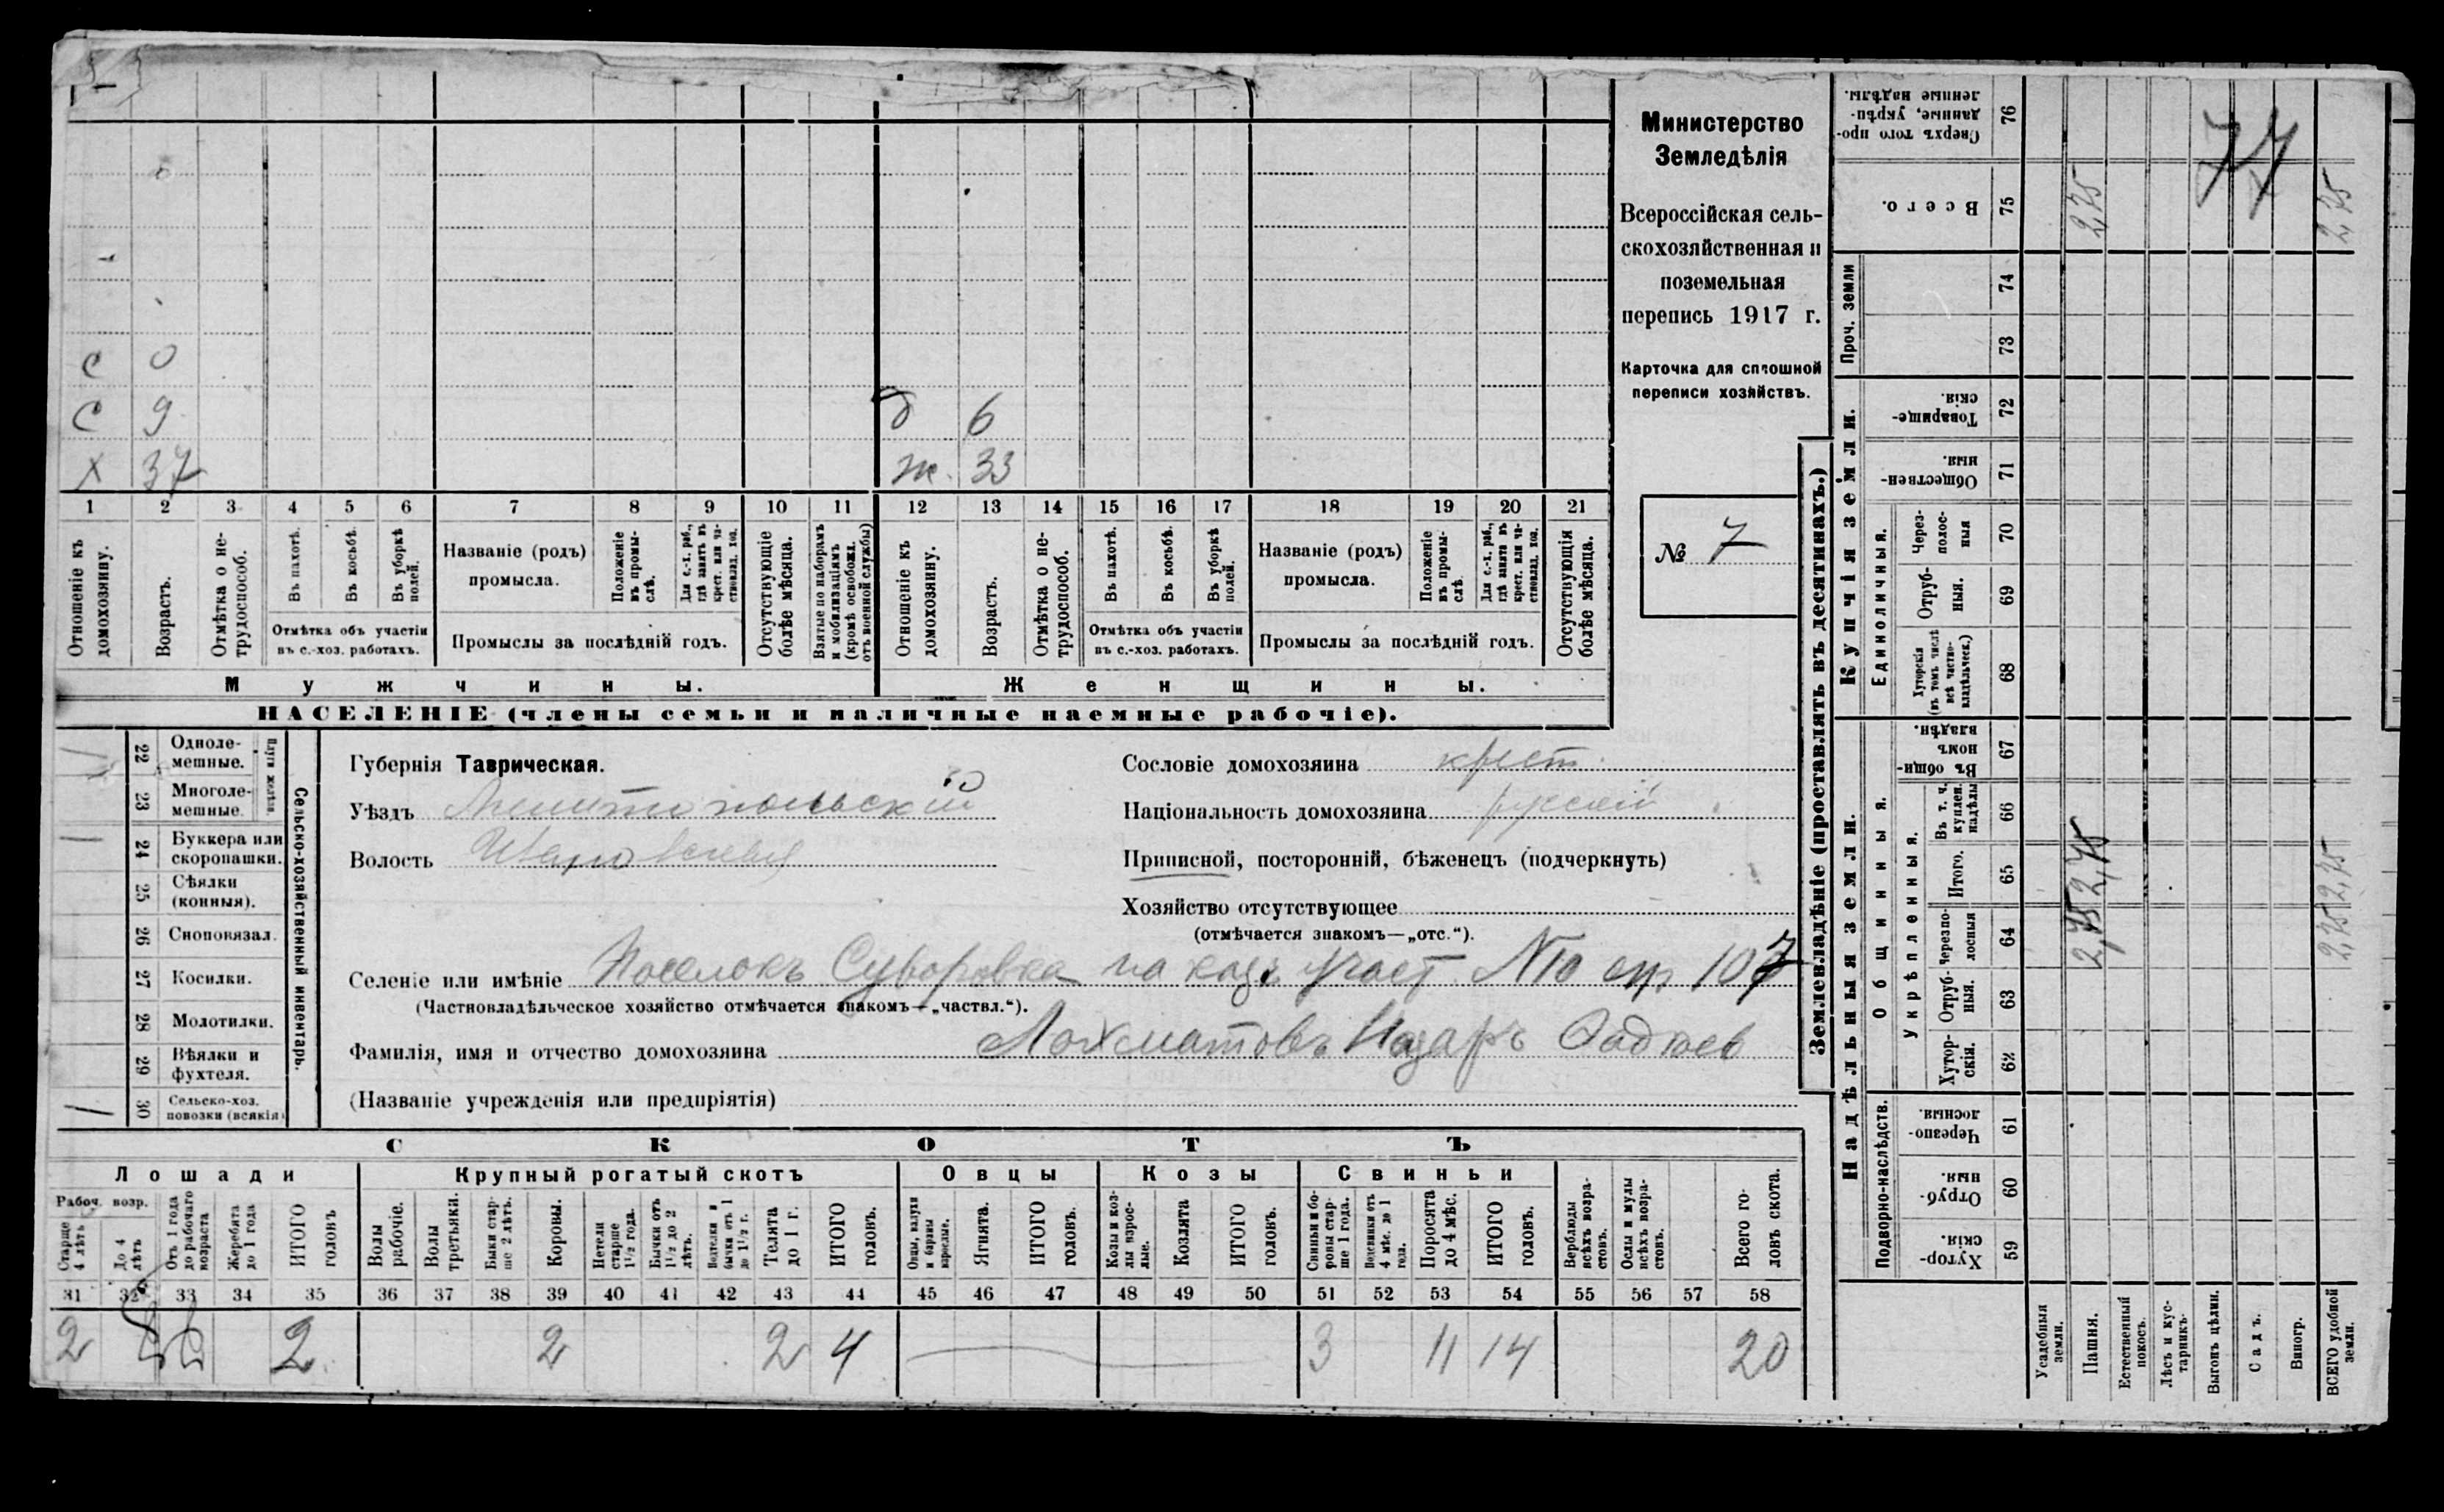 с 0
с 9 д 6
х 37 ж. 33
1 2 3 4 5 6 7 8 9 10 11 12 13 14 15 16 17 18 19 20 21
Отношеніе къ домохозяину.
Возрастъ.
Отмѣтка о не-трудоспособ.
Въ пахотѣ.
Въ косьбѣ.
Въ уборкѣ полей.
Отмѣтка объ участіи
въ с.-хоз. работахъ.
Названіе (родъ)
промысла.
Положеніе въ промы-слѣ.
Для с.-х. раб., гдѣ занятъ въ крест. или ча-стновлад. хоз.
Промыслы за послѣдній годъ.
Отсутствующіе болѣе мѣсяца.
Взятые по наборамъ и мобилизаціямъ (кромѣ освобожд. отъ военной службы)
Отношеніе къ домохозяину.
Возрастъ.
Отмѣтка о не-трудоспособ.
Въ пахотѣ.
Въ косьбѣ.
Въ уборкѣ полей.
Отмѣтка объ участіи
въ с.-хоз. работахъ.
Названіе (родъ)
промысла.
Положеніе въ промы-слѣ.
Для с.-х. раб., гдѣ занята въ крест. или ча-стновлад. хоз.
Промыслы за послѣдній годъ.
Отсутствующія болѣе мѣсяца.
Мужчины.
Женщины.
НАСЕЛЕНІЕ (члены семьи и наличные наемные рабочіе).
Министерство
Земледѣлія
Всероссійская сель-
скохозяйственная и
поземельная
перепись 1917 г.
Карточка для сплошной
переписи хозяйствъ.
№ 7
22 Одноле-мешные.
23 Многоле-мешные.
Плуги желѣзн.
24 Буккера или скоропашки.
25 Сѣялки (конныя).
26 Сноповязал.
27 Косилки.
28 Молотилки.
29 Вѣялки и фухтеля.
30 Сельско-хоз. повозки (всякія)
Сельско-хозяйственный инвентарь.
Губернія Таврическая.
Уѣздъ Мелитопольский
Волость
Сословіе домохозяина крест.
Національность домохозяина русский
Приписной, посторонній, бѣженецъ (подчеркнуть)
Хозяйство отсутствующее
(отмѣчается знакомъ—„отс.“).
Селеніе или имѣніе Поселокъ Суворовка на каз. участ. №10 стр 107
(Частновладѣльческое хозяйство отмѣчается знакомъ—„частвл.“).
Фамилія, имя и отчество домохозяина Лохматовъ Назаръ
(Названіе учрежденія или предпріятія)
СКОТЪ
Лошади Крупный рогатый скотъ Овцы Козы Свиньи
Рабоч. возр.
Старше 4 лѣтъ
До 4 лѣтъ
Отъ 1 года до рабочаго возраста
Жеребята до 1 года
ИТОГО головъ
Волы рабочіе.
Волы третьяки.
Быки стар-ше 2 лѣтъ.
Коровы.
Нетели старше 1½ года.
Бычки отъ 1½ до 2 лѣтъ.
бычки отъ 1 до 1½ г.
Телята до 1 г.
ИТОГО головъ.
Овцы, валухи и бараны взрослые.
Ягнята.
ИТОГО головъ.
Козы и коз-лы взрос-лые.
Козлята
ИТОГО головъ.
Свиньи и бо-ровы стар-ше 1 года.
Подсвинки отъ 4 мѣс. до 1 года.
Поросята до 4 мѣс.
ИТОГО головъ.
Верблюды всѣхъ возра-стовъ.
Ослы и мулы всѣхъ возра-стовъ.
Всего го-ловъ скота.
31 32 33 34 35 36 37 38 39 40 41 42 43 44 45 46 47 48 49 50 51 52 53 54 55 56 57 58
2 2 2 2 4 3 11 14 20
Землевладѣніе (проставлять въ десятинахъ.)
Надѣльныя земли.
Подворно-наслѣдств.
Хутор-скія. 59
Отруб-ныя. 60
Черезпо-лосныя. 61
Общинныя.
Укрѣпленныя.
Хутор-скія. 62
Отруб-ныя. 63
Черезпо-лосныя 64
Итого. 65
Въ т. ч. куплен. надѣлы 66
Въ общи-номъ владѣн. 67
Купчія земли.
Единоличныя.
Хуторскія (въ томъ числѣ всѣ частно-владѣльческ.) 68
Отруб-ныя. 69
Через-полос-ныя 70
Обществен-ныя. 71
Товарище-скія. 72
Проч. земли
73 74
Всего. 75
Сверхъ того про-данные, укрѣп-ленные надѣлы. 76
Усадебныя земли.
Пашня. 2,75 2,75 2,75
Естественный покосъ.
Лѣсъ и кус-тарникъ
Выгонъ цѣлин.
Садъ.
Виногр.
ВСЕГО удобной земли. 2,75 2,75 2,75
77